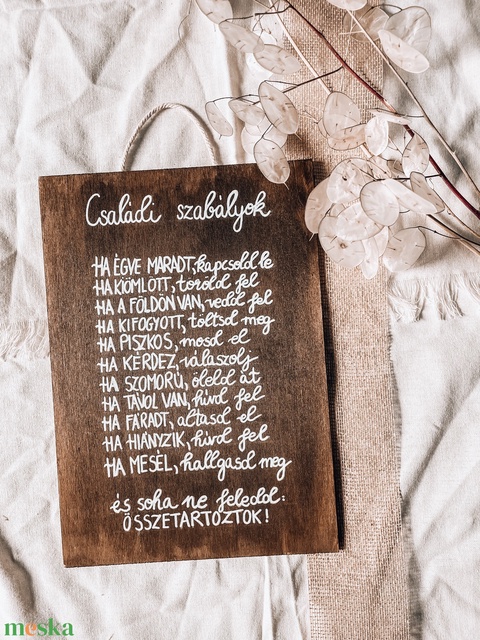 Családi szabályok
HA ÉGVE MARADT, kapcsold le
HA KIÖMLÖTT, töröld fel
HA A FÖLDÖN VAN, vedd fel
HA KIFOGYOTT, töltsd meg
HA PISZKOS, mosd el
HA KÉRDEZ, válaszolj
HA SZOMORÚ, öleld át
HA TÁVOL VAN, hívd fel
HA FÁRADT, altasd el
HA HIÁNYZIK, hívd fel
HA MESÉL, hallgasd meg
és soha ne feledd:
ÖSSZETARTOZTOK!
meska